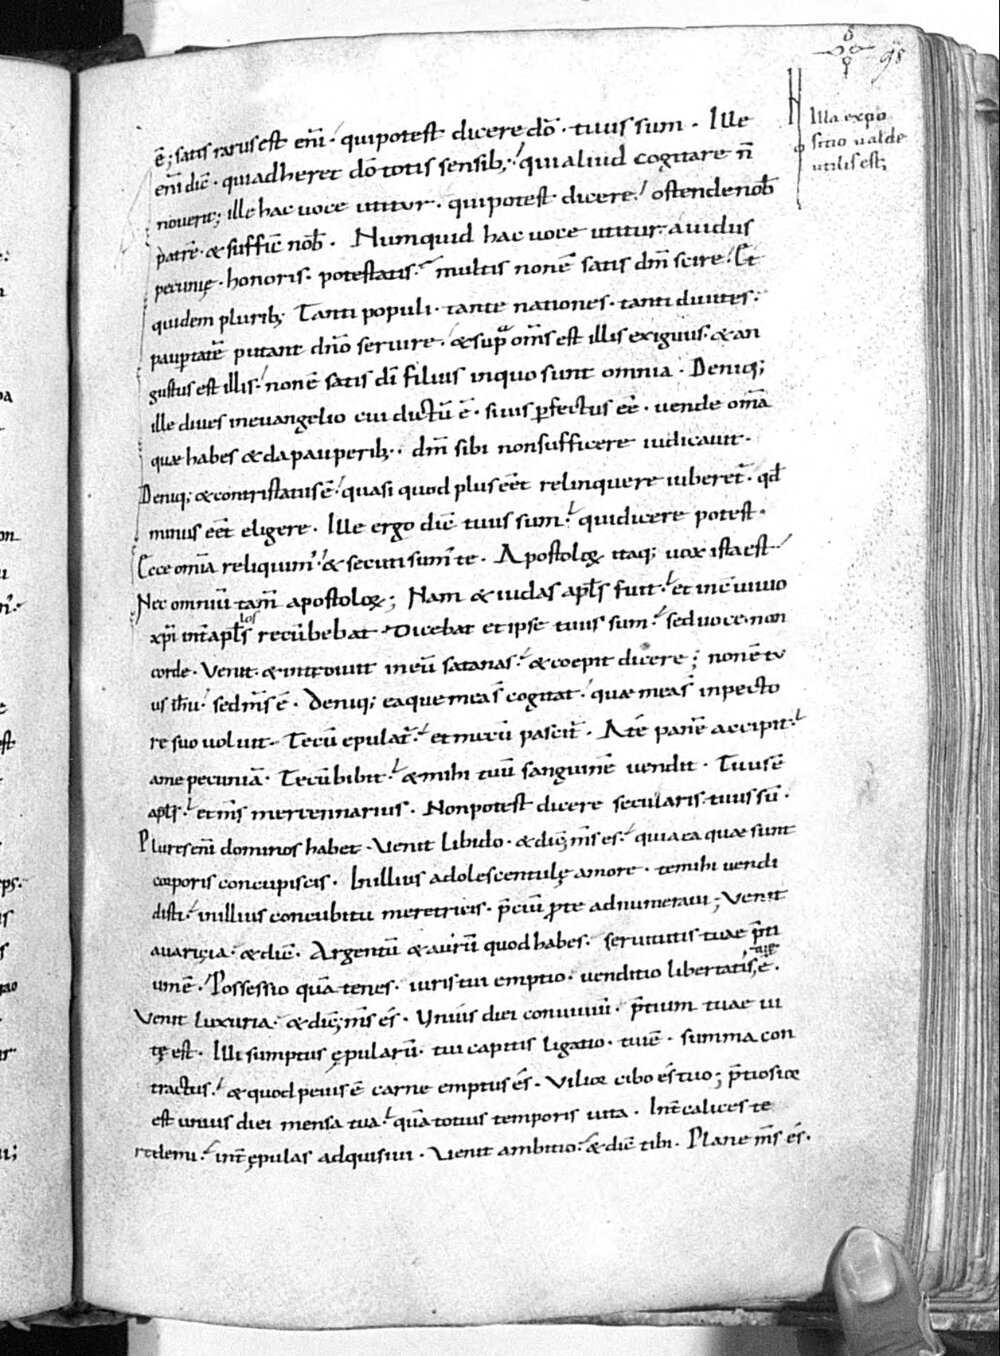 98
Illa expo
sitio valde
utilis est;
ē; satis rarus est enī · qui potest dicere dō · tuus sum · Ille
enī dic̄ · qui adheret dō totis sensib; · qui aliud cogitare n̄
noverit; ille hac voce utitur · qui potest dicere · ostende nob̄
patrē · & suffic̄ nob̄ · Numquid hac voce utitur avidus
pecunię · honoris · potestatis · multis non ē satis dn̄m scire · Et
quidem plurib; Tanti populi · tante nationes · tanti divites ·
paup̄tatē putant dn̄o servire · & sup̄ om̄s est illis exiguus · & an
gustus est illis · non ē satis dī filius in quo sunt omnia · Deniq;
ille dives in evangelio cui dictū ē · si vis p̄fectus eē · vende om̄a
quae habes & da pauperib; · dn̄m sibi non sufficere iudicavit ·
Deniq; & contristatus ē · quasi quod plus eēt relinquere iuberet̄ · qd̄
minus eēt eligere · Ille ergo dic̄ tuus sum · qui dicere potest ·
Ecce om̄ia reliquim̄ · & secuti sum̄ te · Apostoloꝝ itaq; vox ista est ·
Nec omniū tam̄ apostoloꝝ; Nam & iudas apl̄s fuit · et in c̄vivio
xp̄i int̄ apl̄s los recūbebat · Dicebat et ipse tuus sum · sed voce non
corde · Venit & introivit in eū satanas · & coepit dicere; non ē tu
us ih̄u · sed m̄s ē · Deniq; ea que mea s̄ cogitat · quae mea s̄ in pecto
re suo voluit · Tecū epulat̄ · et mecū pascit̄ · A te panē accipit ·
a me pecuniā · Tecū bibit · & mihi tuū sanguinē vendit · Tuus ē
apl̄s · et m̄s mercennarius · Non potest dicere secularis tuus sū ·
Plures enī dominos habet · Venit libido · & dic̄; m̄s es · quia ea quae sunt
corporis concupiscis · In illius adolescentulę amore · te mihi vendi
disti · in illius concubitu meretricis · p̄ciū p̄ te adnumeravi; Venit
avariçia · & dic̄ · Argentū & aurū quod habes · servitutis tuae p̄ti
um ē · Possessio quā tenes · iuris tui emptio · venditio libertatis tuę ē ·
Venit luxuria · & dic̄; m̄s ēs · Unius diei conviviū · p̄tium tuae vi
tę est · Illi sumptus ępularū · tui capitis ligatio · tui ē · summa con
tractus · & quod peius ē carne emptus ēs · Vilioꝛ cibo ēs tuo; p̄tiosioꝛ
est unius diei mensa tua · quā totius temporis vita · Int̄ calices te
redemi · int̄ ępulas adquisivi · Venit ambitio · & dic̄ tibi · Plane m̄s ēs ·